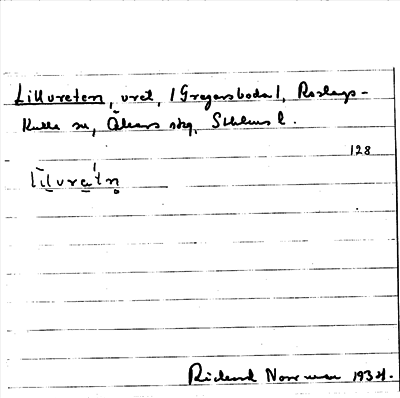 Lillvreten, vret, (Gregersboda), Roslags-
Kulla sn, Åkers skg, Sthlms l.
128
līlvre̱'tn̥
Rickard Norrman 1934.